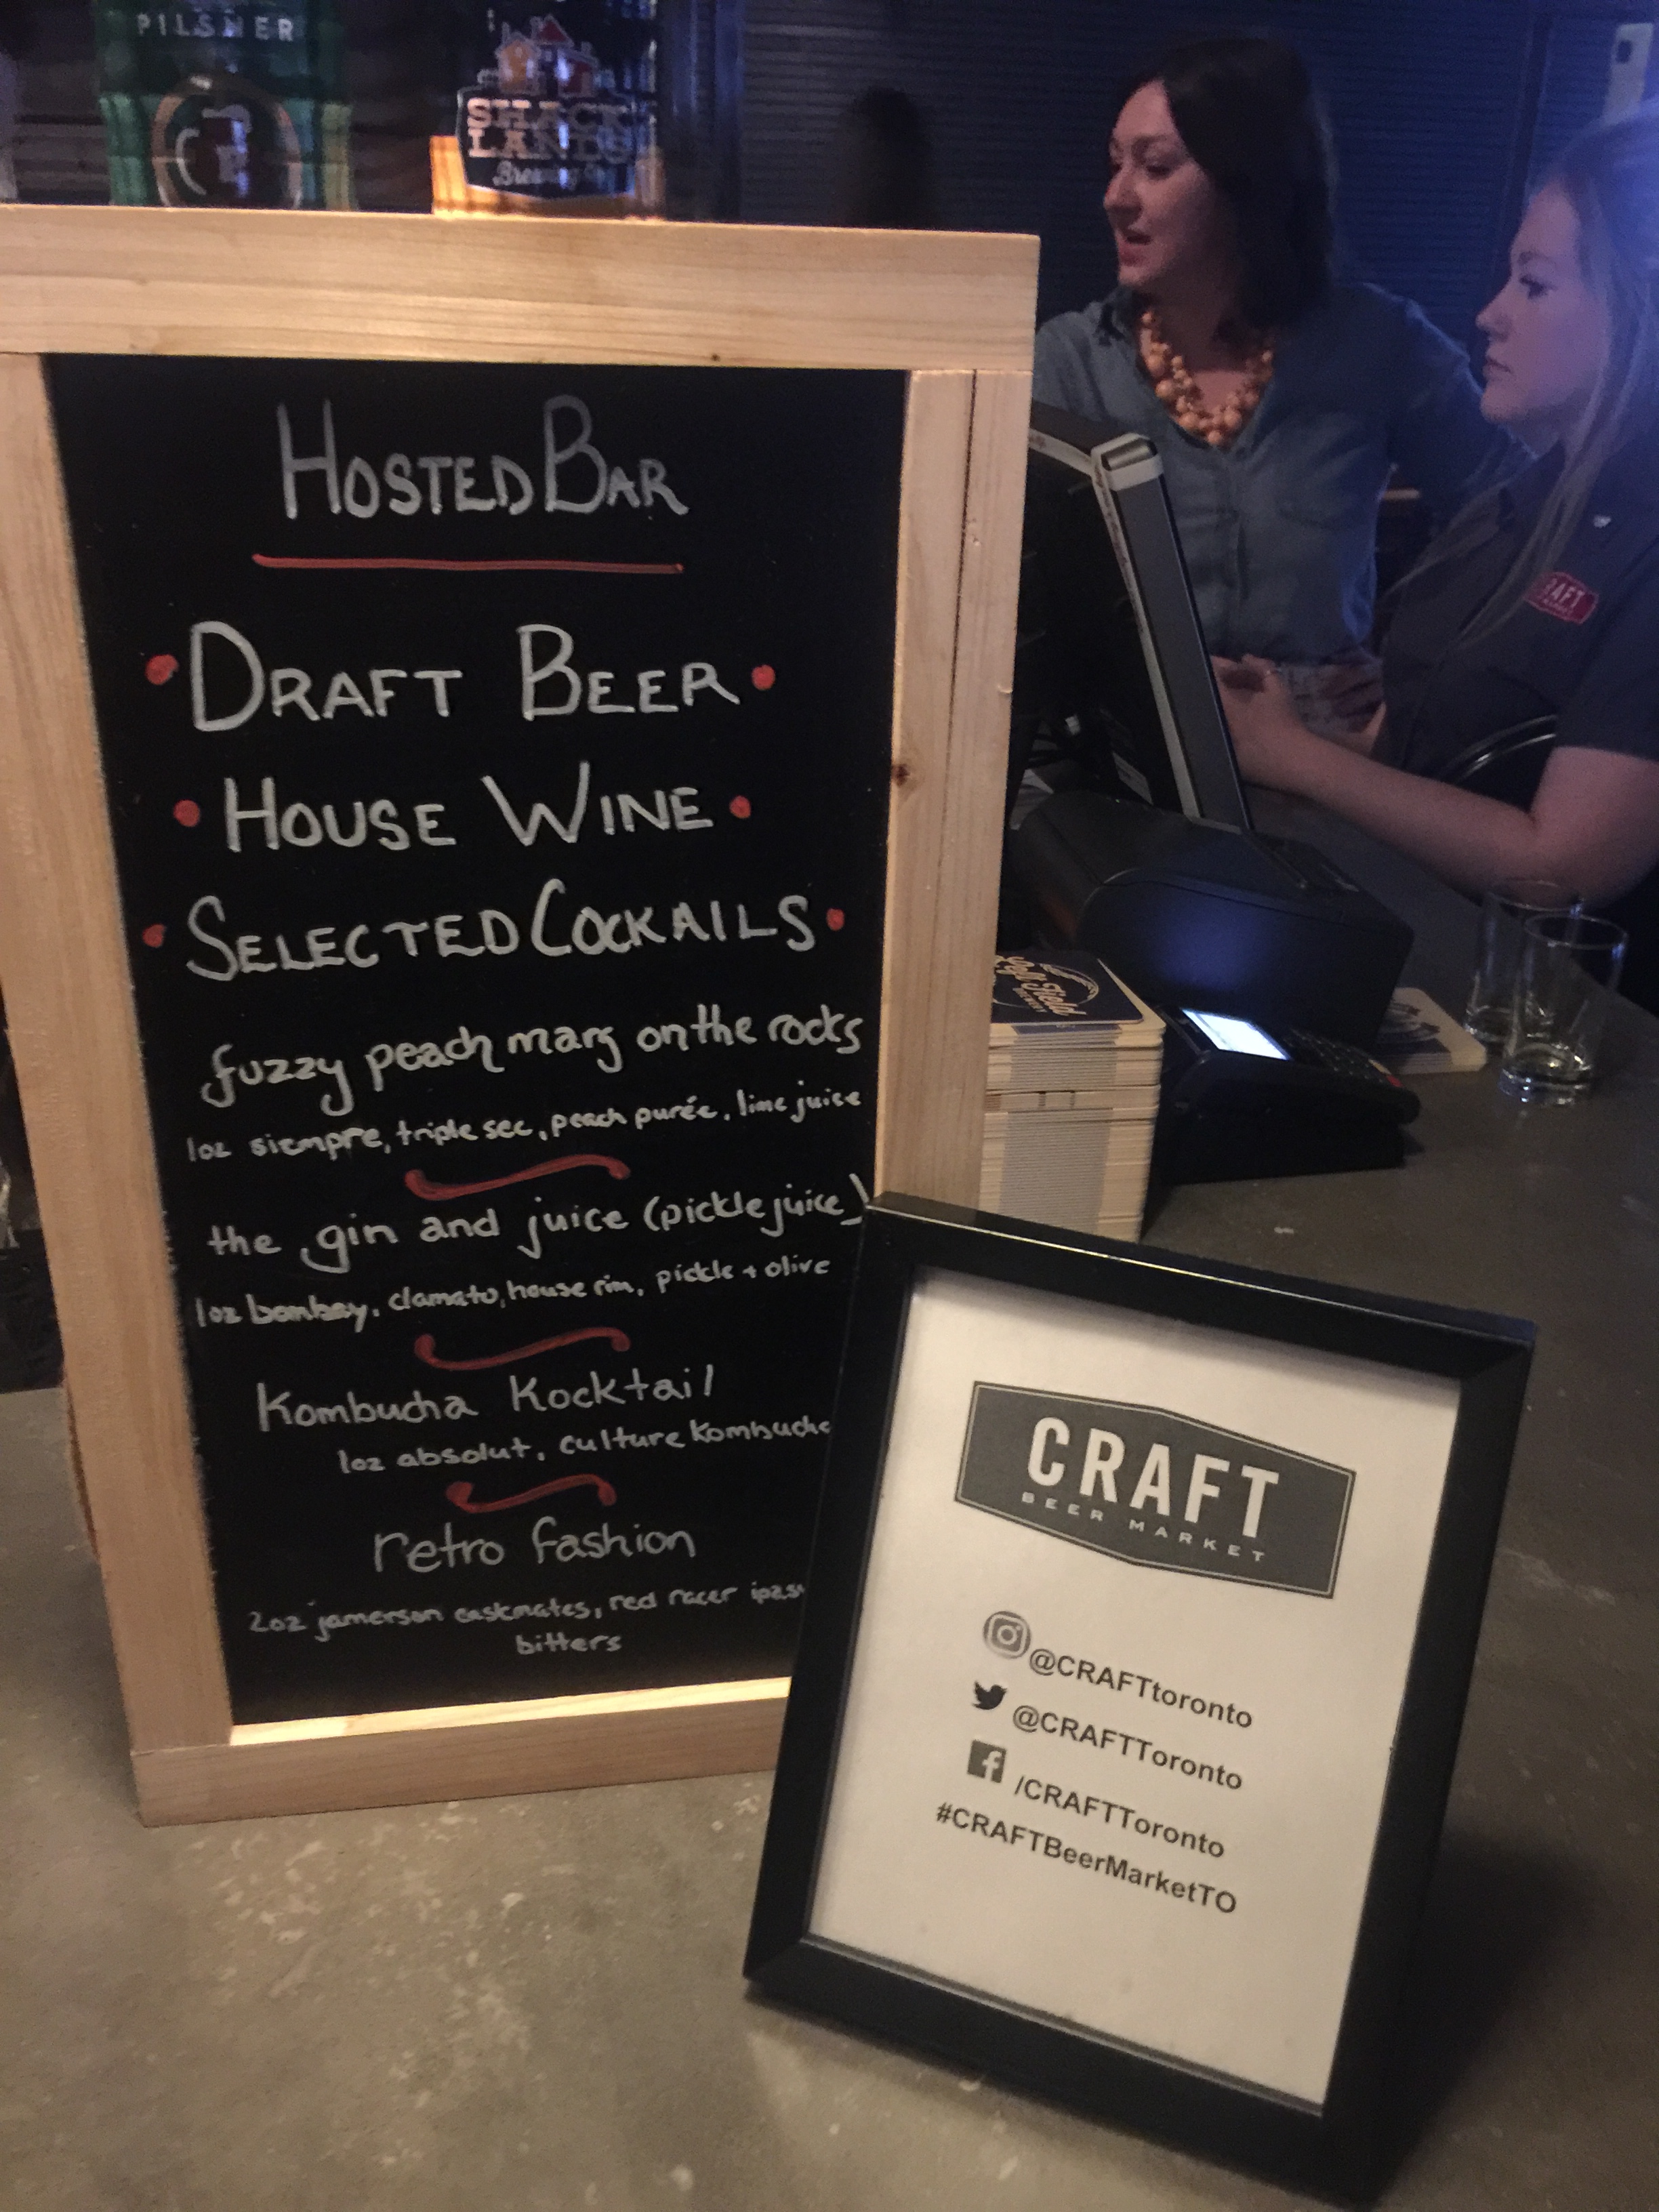 PILSNER
SHACK
LANDS
Brewing Co
HOSTED BAR
• DRAFT BEER •
• HOUSE WINE •
• SELECTED COCKAILS •
fuzzy peach marg on the rocks
1oz siempre, triple sec, peach purée, lime juice
the gin and juice (pickle juice)
1oz bombay, clamato, house rim, pickle + olive
Kombucha Kocktail
1oz absolut, culture Kombucha
retro fashion
2oz jamerson caskmates, red racer
bitters
RAFT
Left Field
CRAFT
BEER MARKET
@CRAFTtoronto
@CRAFTToronto
/CRAFTToronto
#CRAFTBeerMarketTO